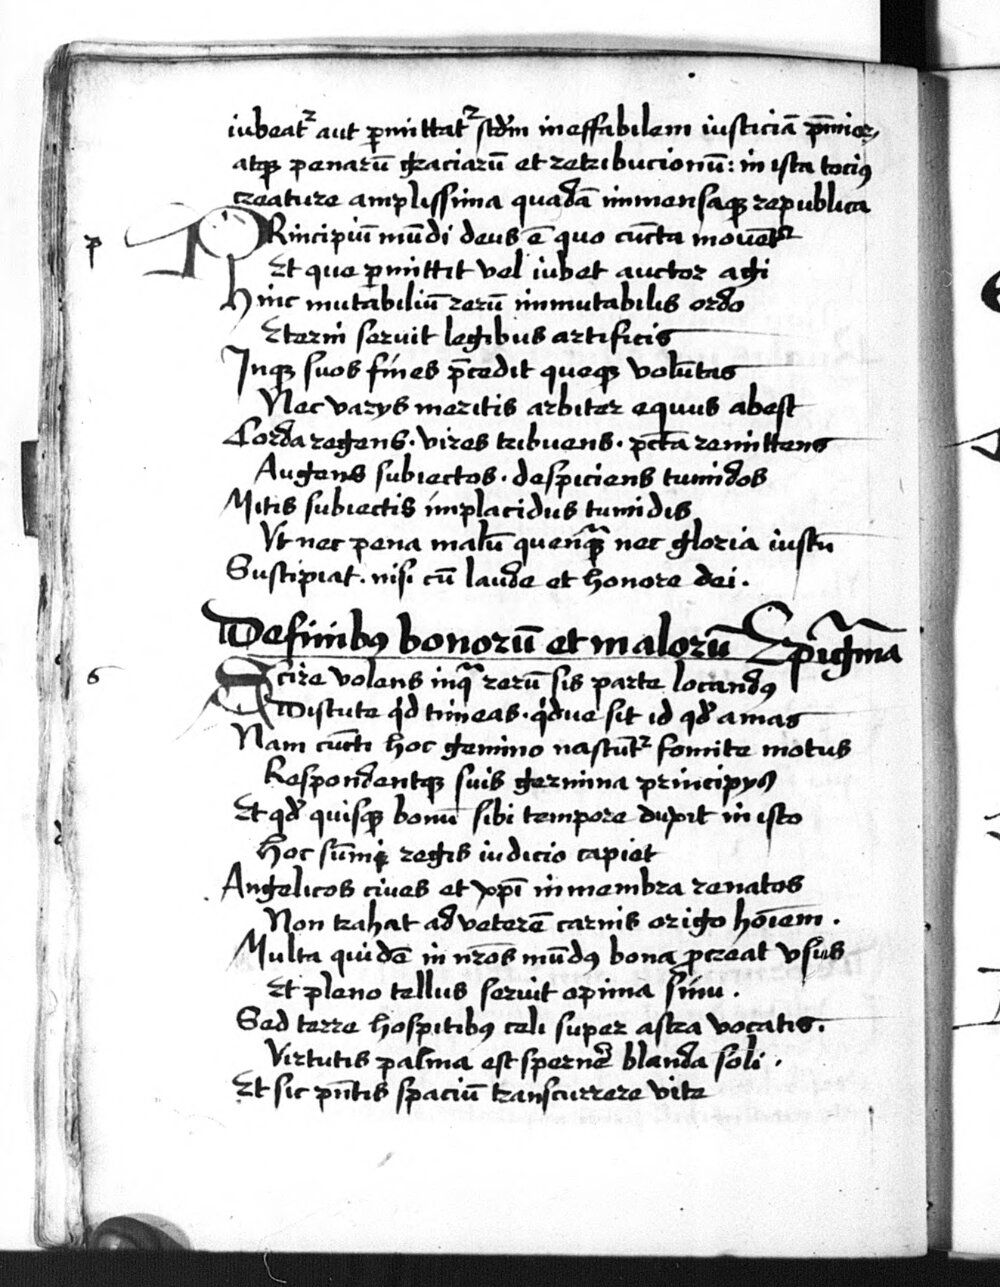 iubeat᷑ aut ꝑmittat᷑ scd̄m ineffabilem iusticiā p̄mioꝝ,
atqꝫ penarū graciarū et retribucionū: in ista tociꝰ
creature amplissima quadā inmensaqꝫ republica
p PRincipiū mūdi deus ē quo cūcta mouēt᷑
Et que ꝑmittit vel iubet auctor agi
Hinc mutabiliū rerū inmutabilis ordo
Eterni seruit legibus artificis
Inqꝫ suos fines p̄cedit queqꝫ volūtas
Nec varijs meritis arbiter equus abest
Corda regens. vires tribuens. pctā remittens
Augens subiectos. despiciens tumidos
Mitis subiectis implacidus tumidis
Vt nec pena malū quenqᷓꝫ nec gloria iustū
Suscipiat. nisi cū laude et honore dei.
De finibꝰ bonorū et malorū Epigrᷓma
6 Scire volens inqᷓ rerū sis parte locandꝰ
Discute qͥd timeas. qͥdue sit id qd̄ amas
Nam cūcti hoc gemino nascūt᷑ fomite motus
Respondentqꝫ suis germina principijs
Et qd̄ quisqꝫ bonū sibi tempore duxit in isto
Hoc sūmi regis iudicio capiet
Angelicos ciues et xp̄i in membra renatos
Non trahat ad veterē carnis origo hoīem.
Multa quidē in nr̄os mūdꝰ bona ꝓcreat vsus
Et pleno tellus seruit opima sinu.
Sed terre hospitibꝰ celi super astra vocatis.
Virtutis palma est spernē blanda soli.
Et sic pn̄tis spaciū transcurrere vite